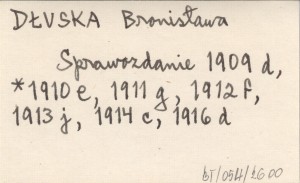 DŁVSKA Bronisława
Sprawozdanie 1909 d,
*1910 e, 1911 g, 1912 f,
1913 j, 1914 c, 1916 d